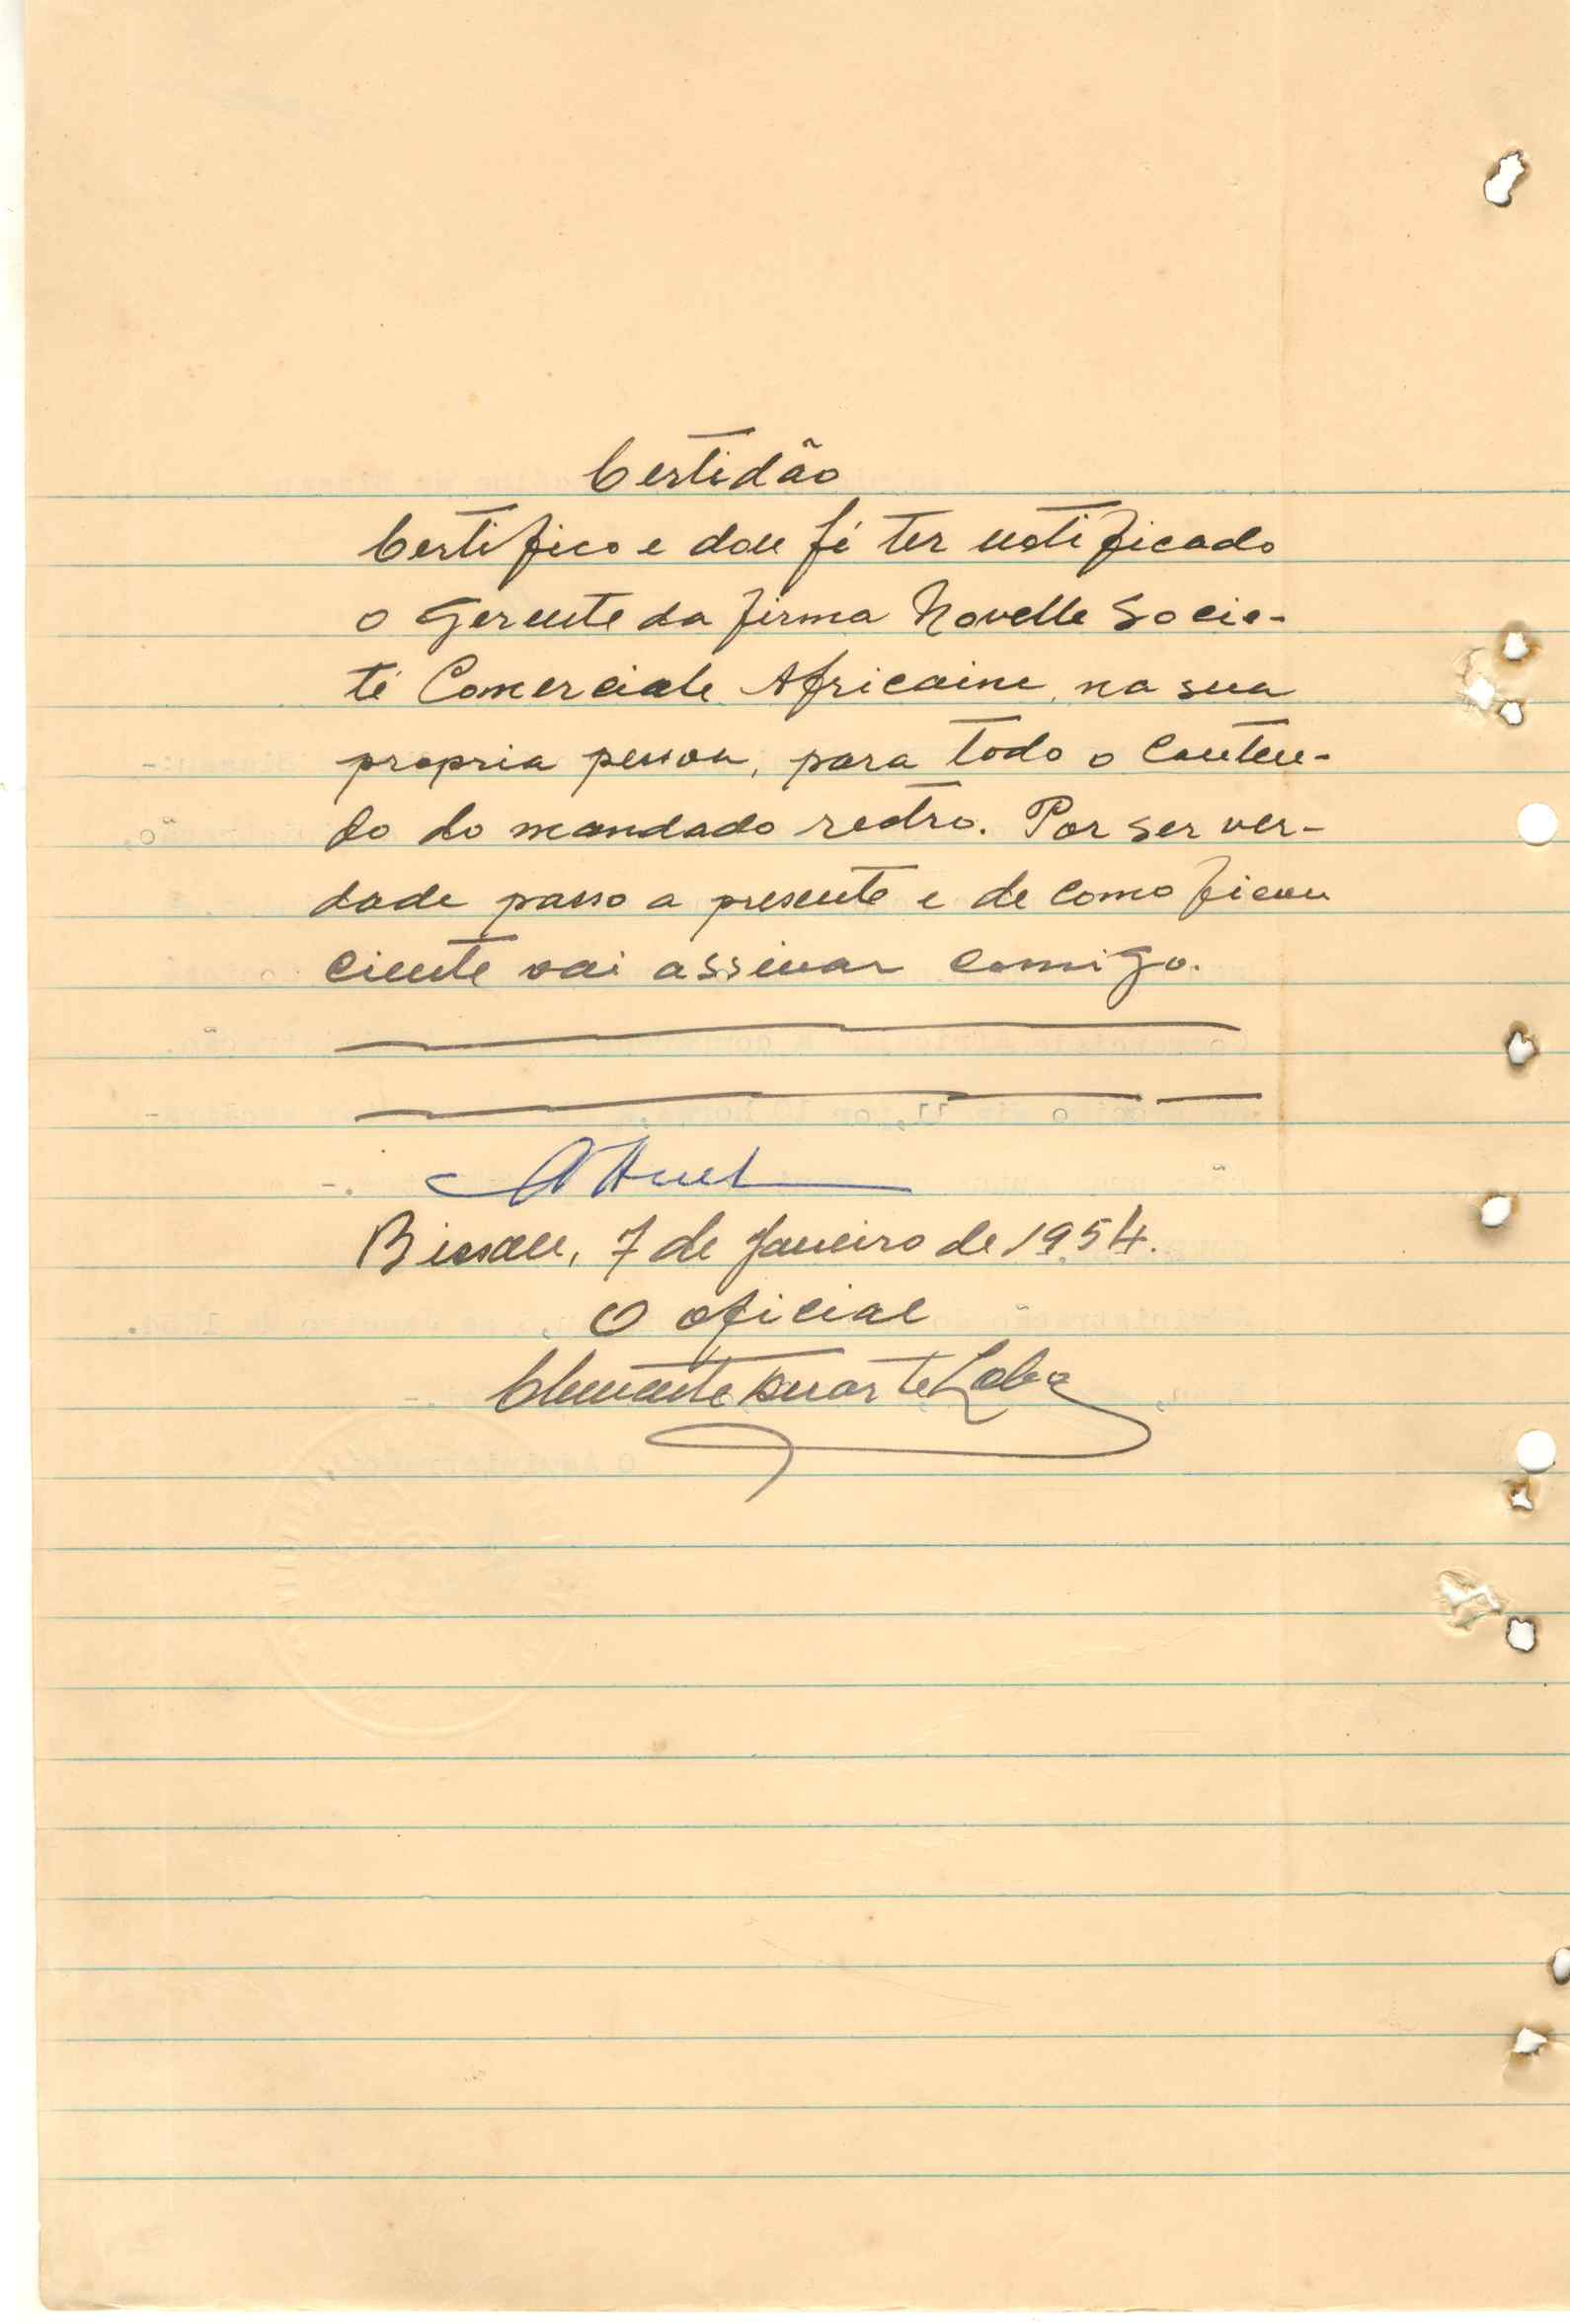 Certidão
Certifico e dou fé ter notificado
o Gerente da firma Novelle Socie-
té Comerciale Africaine, na sua
propria pessoa, para todo o conteu-
do do mandado rectro. Por ser ver-
dade passo a presente e de como ficou
ciente vai assinar comigo.
Bissau, 7 de Janeiro de 1954.
O oficial
Clemente Duarte Lobo